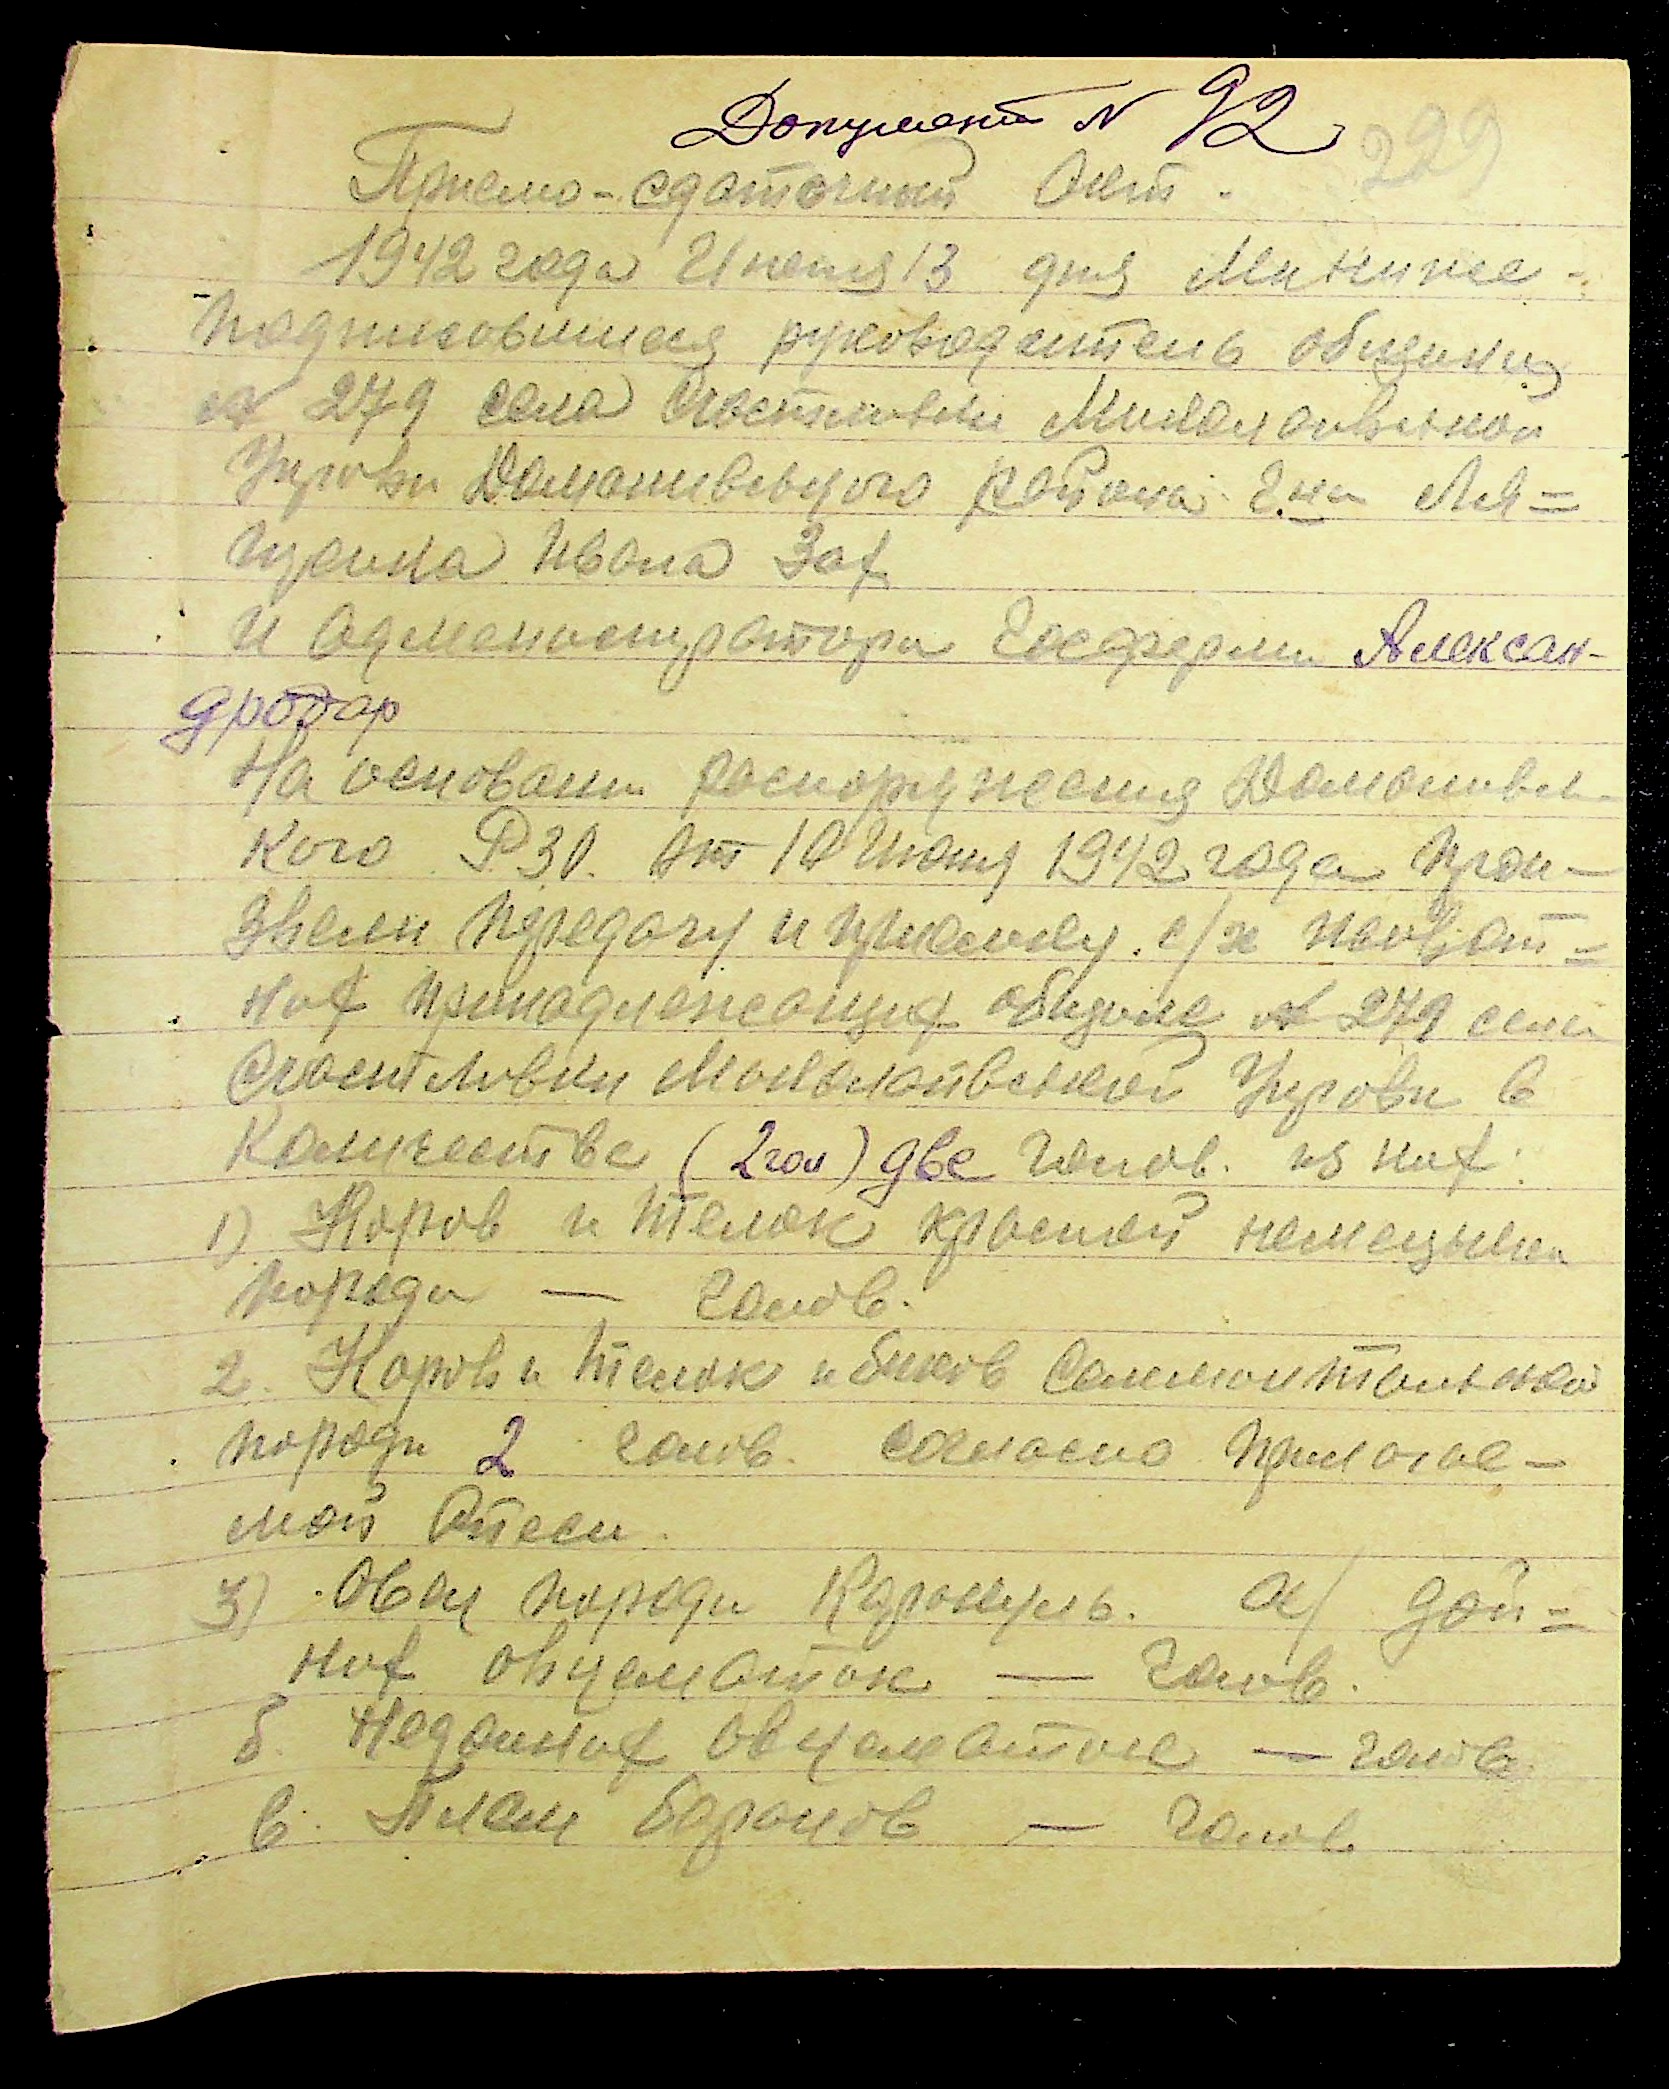 Документ N 92
229
Приемо-сдаточний Акт.
1942 года Июня 13 дня Мы ниже-
подписовшиеся руководитель общини
№ 279 села Счастливки Михалаивской
Управи Доманивського района г.на Ля=
Ивана Заф
и Администратора Госферми Алексан-
дродар
На основании распоряжения Доманивс
кого РЗО. от 10 Июня 1942 года прои-
звели передачу и приемку с/х животн=
ных принадлежащих общине № 279 села
Счастливки Михалаивской Управи в
Количестве (2 гол) две голов. из них:
1) Коров и Телок красной немецькой
породи — голов.
2. Коров и Телок и биков Сементальской
породи 2 голов. согласно прилогае-
мой Описи.
3) Овец породи Каракуль. а/ дой=
них овцематок — голов.
б. Недойних овцематок — голов
в. Плем баранов — голов